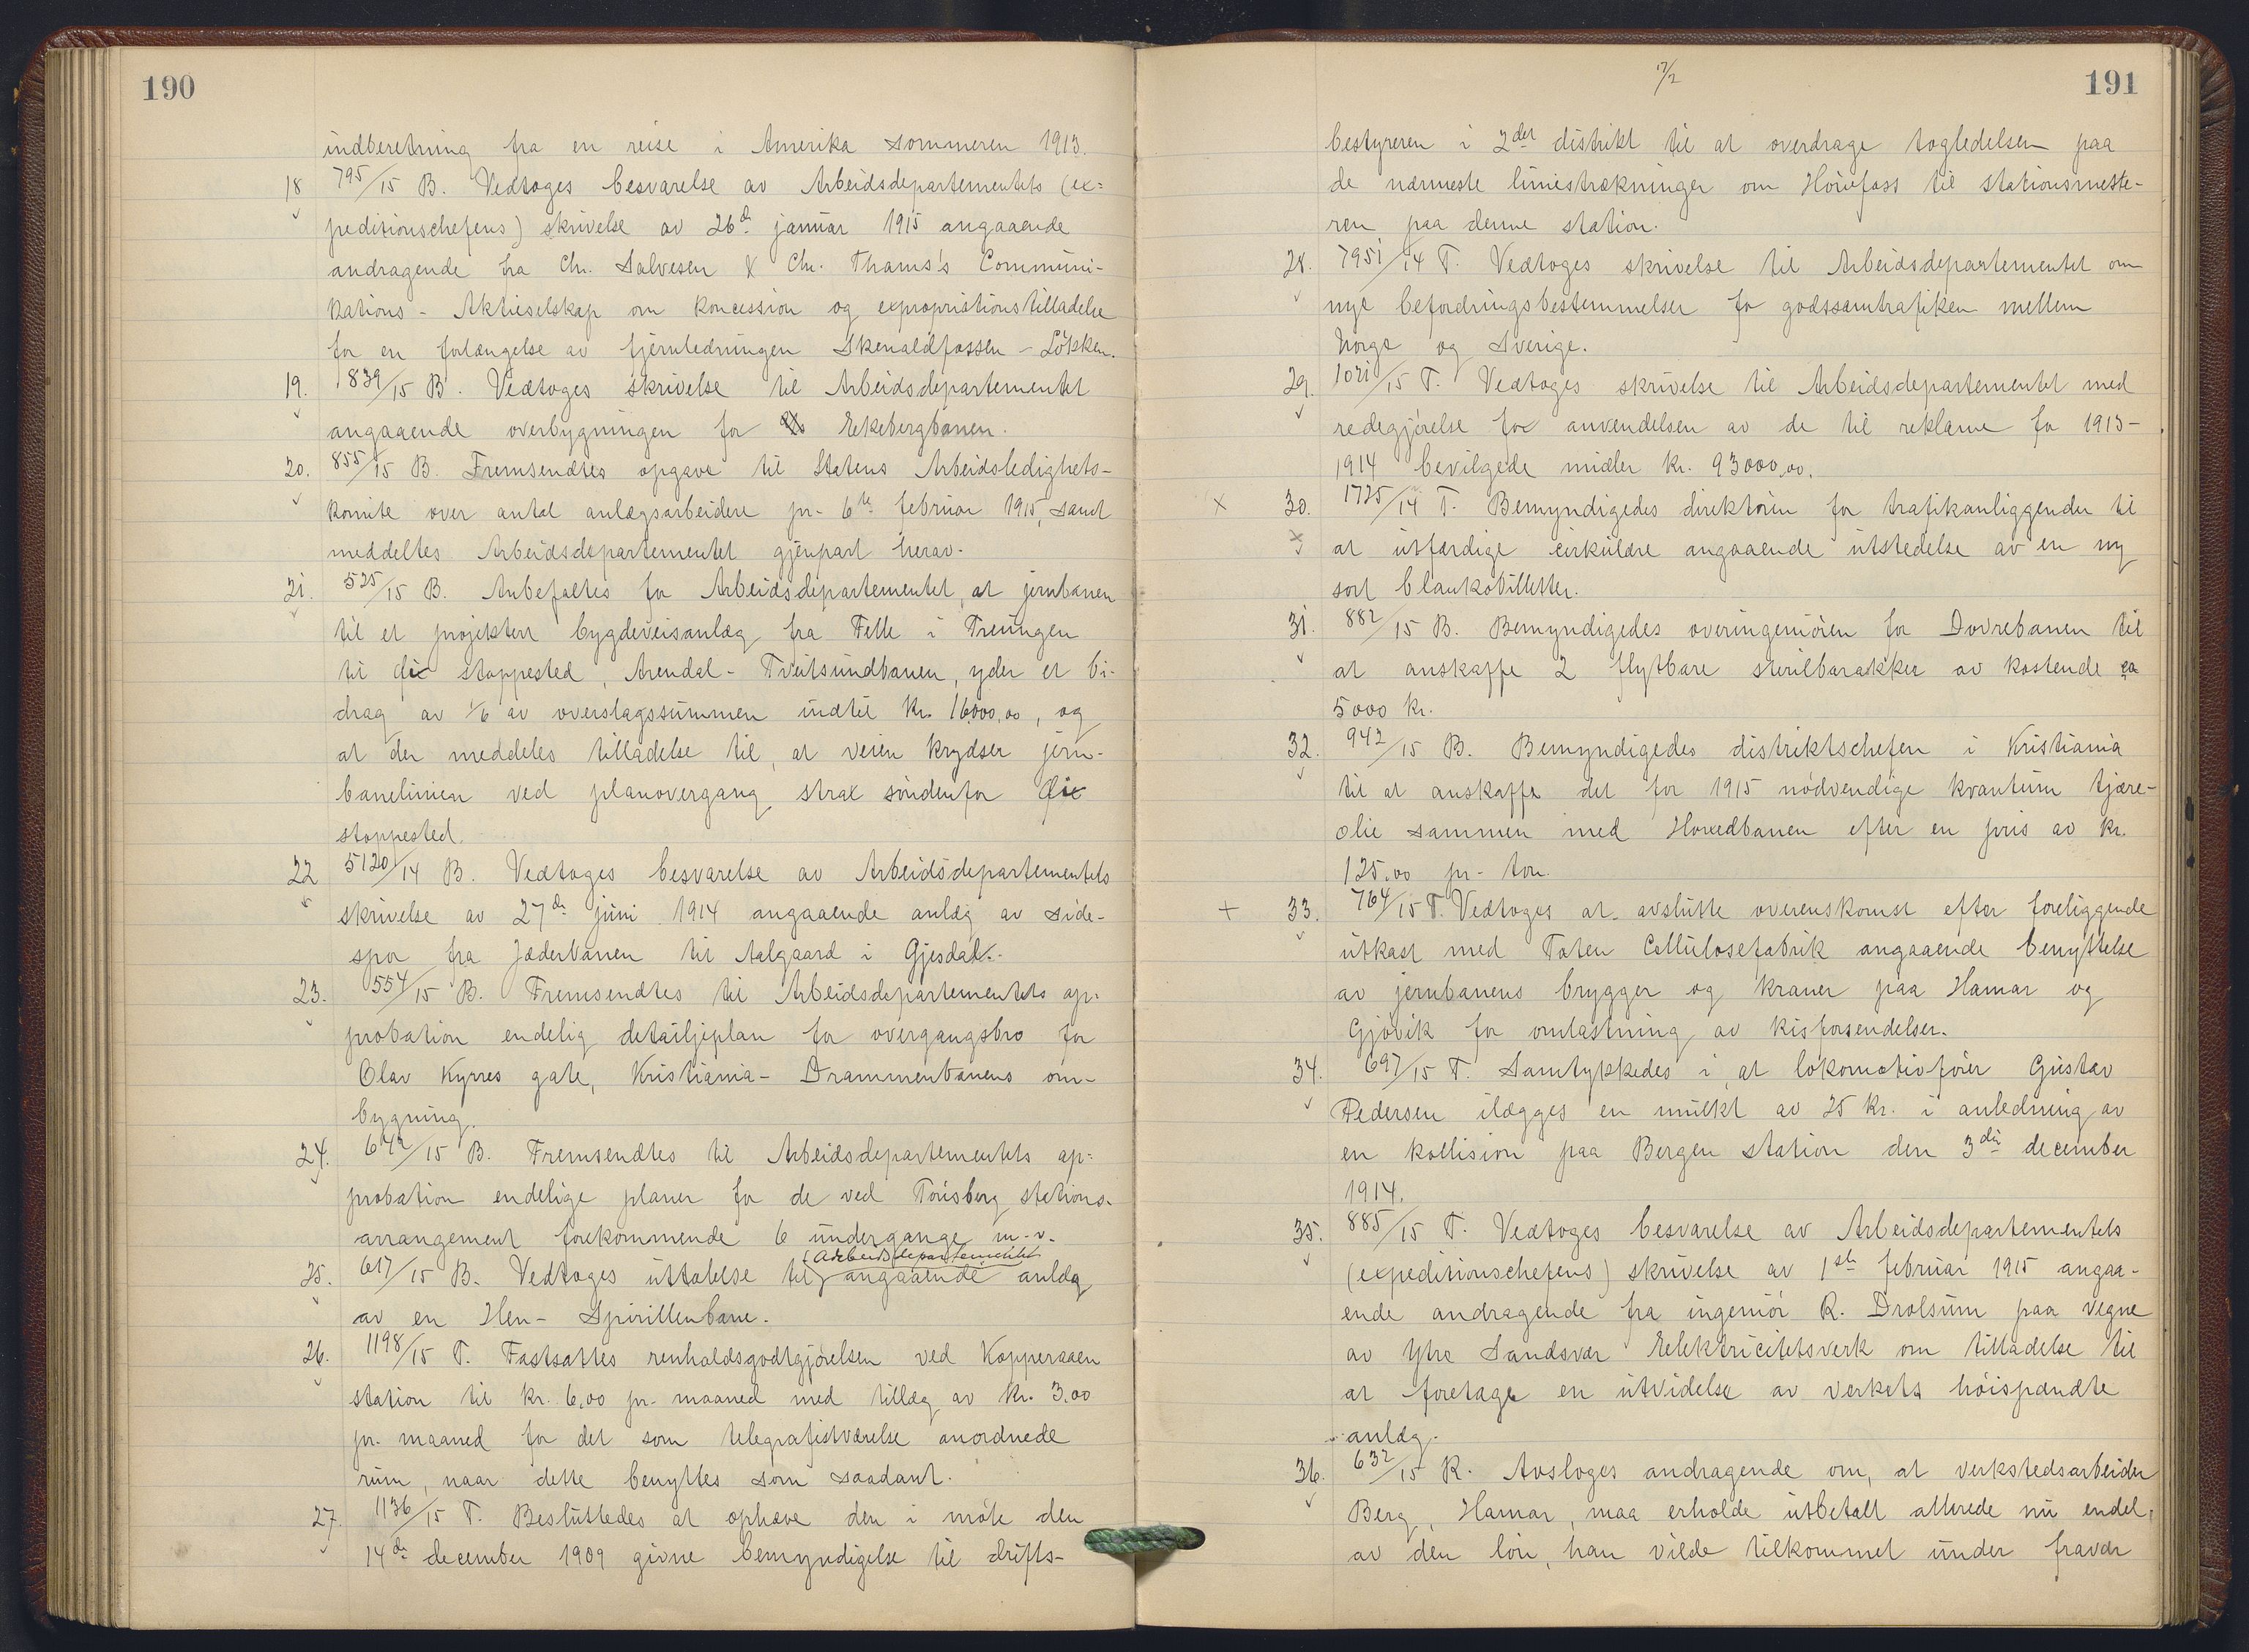 190
indberetning fra en reise i Amerika sommeren 1913.
18 795/15 B. Vedtoges besvarelse av Arbeidsdepartementets (ex=
peditionschefens) skrivelse av 26de januar 1915 angaaende
andragende fra Chr. Salvesen & Chr. Thams's Communi-
kations - Aktieselskap om koncession og expropriationstilladelse
for en forlængelse av fjernledningen Skenaldfossen - Løkken.
19. 839/15 B. Vedtoges skrivelse til Arbeidsdepartementet
angaaende overbygningen for Ekebergbanen.
20. 855/15 B. Fremsendtes opgave til Statens Arbeidsledighets-
komite over antal anlægsarbeidere pr. 6te februar 1915, samt
meddeltes Arbeidsdepartementet gjenpart herav.
21. 525/15 B. Anbefaltes for Arbeidsdepartementet, at jernbanen
til et projektert bygdeveisanlæg fra Felle i Treungen
til Øi stoppested, Arendal - Tveitsundbanen, yder et bi-
drag av 1/6 av overslagssummen indtil kr. 16000,00, og
at der meddeles tilladelse til, at veien krydser jern-
banelinien ved planovergang strax søndenfor Øi
stoppested.
22 5120/14 B. Vedtoges besvarelse av Arbeidsdepartementets
skrivelse av 27de juni 1914 angaaende anlæg av side-
spor fra Jæderbanen til Aalgaard i Gjesdal.
23. 554/15 B. Fremsendtes til Arbeidsdepartementets ap-
probation endelig detailjeplan for overgangsbro for
Olav Kyrres gate, Kristiania - Drammenbanens om-
bygning.
24. 642/15 B. Fremsendtes til Arbeidsdepartementets ap=
probation endelige planer for de ved Tønsberg stations-
arrangement forekommende 6 undergange m.v.
25. 617/15 B. Vedtoges uttalelse til (Arbeidsdepartementet angaaende anlæg
av en Hen - Spirillenbane.
26. 1198/15 T. Fastsattes renholdsgodtgjørelsen ved Kopperaaen
station til kr. 6,00 pr. maaned med tillæg av kr. 3,00
pr. maaned for det som telegrafistværelse anordnede
rum, naar dette benyttes som saadant.
27. 1136/15 T. Besluttedes at ophæve den i møte den
14de december 1909 givne bemyndigelse til drifts-
17/2
191
bestyreren i 2det distrikt til at overdrage togledelsen paa
de nærmeste liniestrækninger om Hønefoss til stationsmeste-
ren paa denne station.
28. 7951/14 T. Vedtoges skrivelse til Arbeidsdepartementet om
nye befordringsbestemmelser for godssamtrafiken mellem
Norge og Sverige.
29. 1021/15 T. Vedtoges skrivelse til Arbeidsdepartementet med
redegjørelse for anvendelsen av de til reklame for 1913-
1914 bevilgede midler kr. 93000,00.
x 30. 1725/14 T. Bemyndigedes direktøren for trafikanliggender til
at utfærdige cirkulære angaaende utstedelse av en ny
sort blankobilletter.
31. 882/15 B. Bemyndigedes overingeniøren for Dovrebanen til
at anskaffe 2 flytbare stenilbarakker av kostende ca
5000 kr.
32. 942/15 B. Bemyndigedes distriktschefen i Kristiania
til at anskaffe det for 1915 nødvendige kvantum tjære-
olie sammen med Hovedbanen efter en pris av kr.
125,00 pr. ton.
+ 33. 764/15 T. Vedtoges at avslutte overenskomst efter foreliggende
utkast med Toten Cellulosefabrik angaaende benyttelse
av jernbanens brygger og kraner paa Hamar og
Gjøvik for omlastning av kisforsendelser.
34. 697/15 T. Samtykkedes i, at lokomotivfører Gustav
Pedersen ilægges en mulkt av 25 kr. i anledning av
en kollision paa Bergen station den 3die december
1914.
35. 885/15 T. Vedtoges besvarelse av Arbeidsdepartementets
(expeditionschefens) skrivelse av 1ste februar 1915 angaa-
ende andragende fra ingeniør R. Drolsum paa vegne
av Ytre Sandsvær Elektricitetsverk om tilladelse til
at foretage en utvidelse av verkets høispændte
anlæg.
36. 632/15 R. Avsloges andragende om, at verkstedsarbeider
Berg, Hamar, maa erholde utbetalt allerede nu endel
av den løn, han vilde tilkommet under fravær